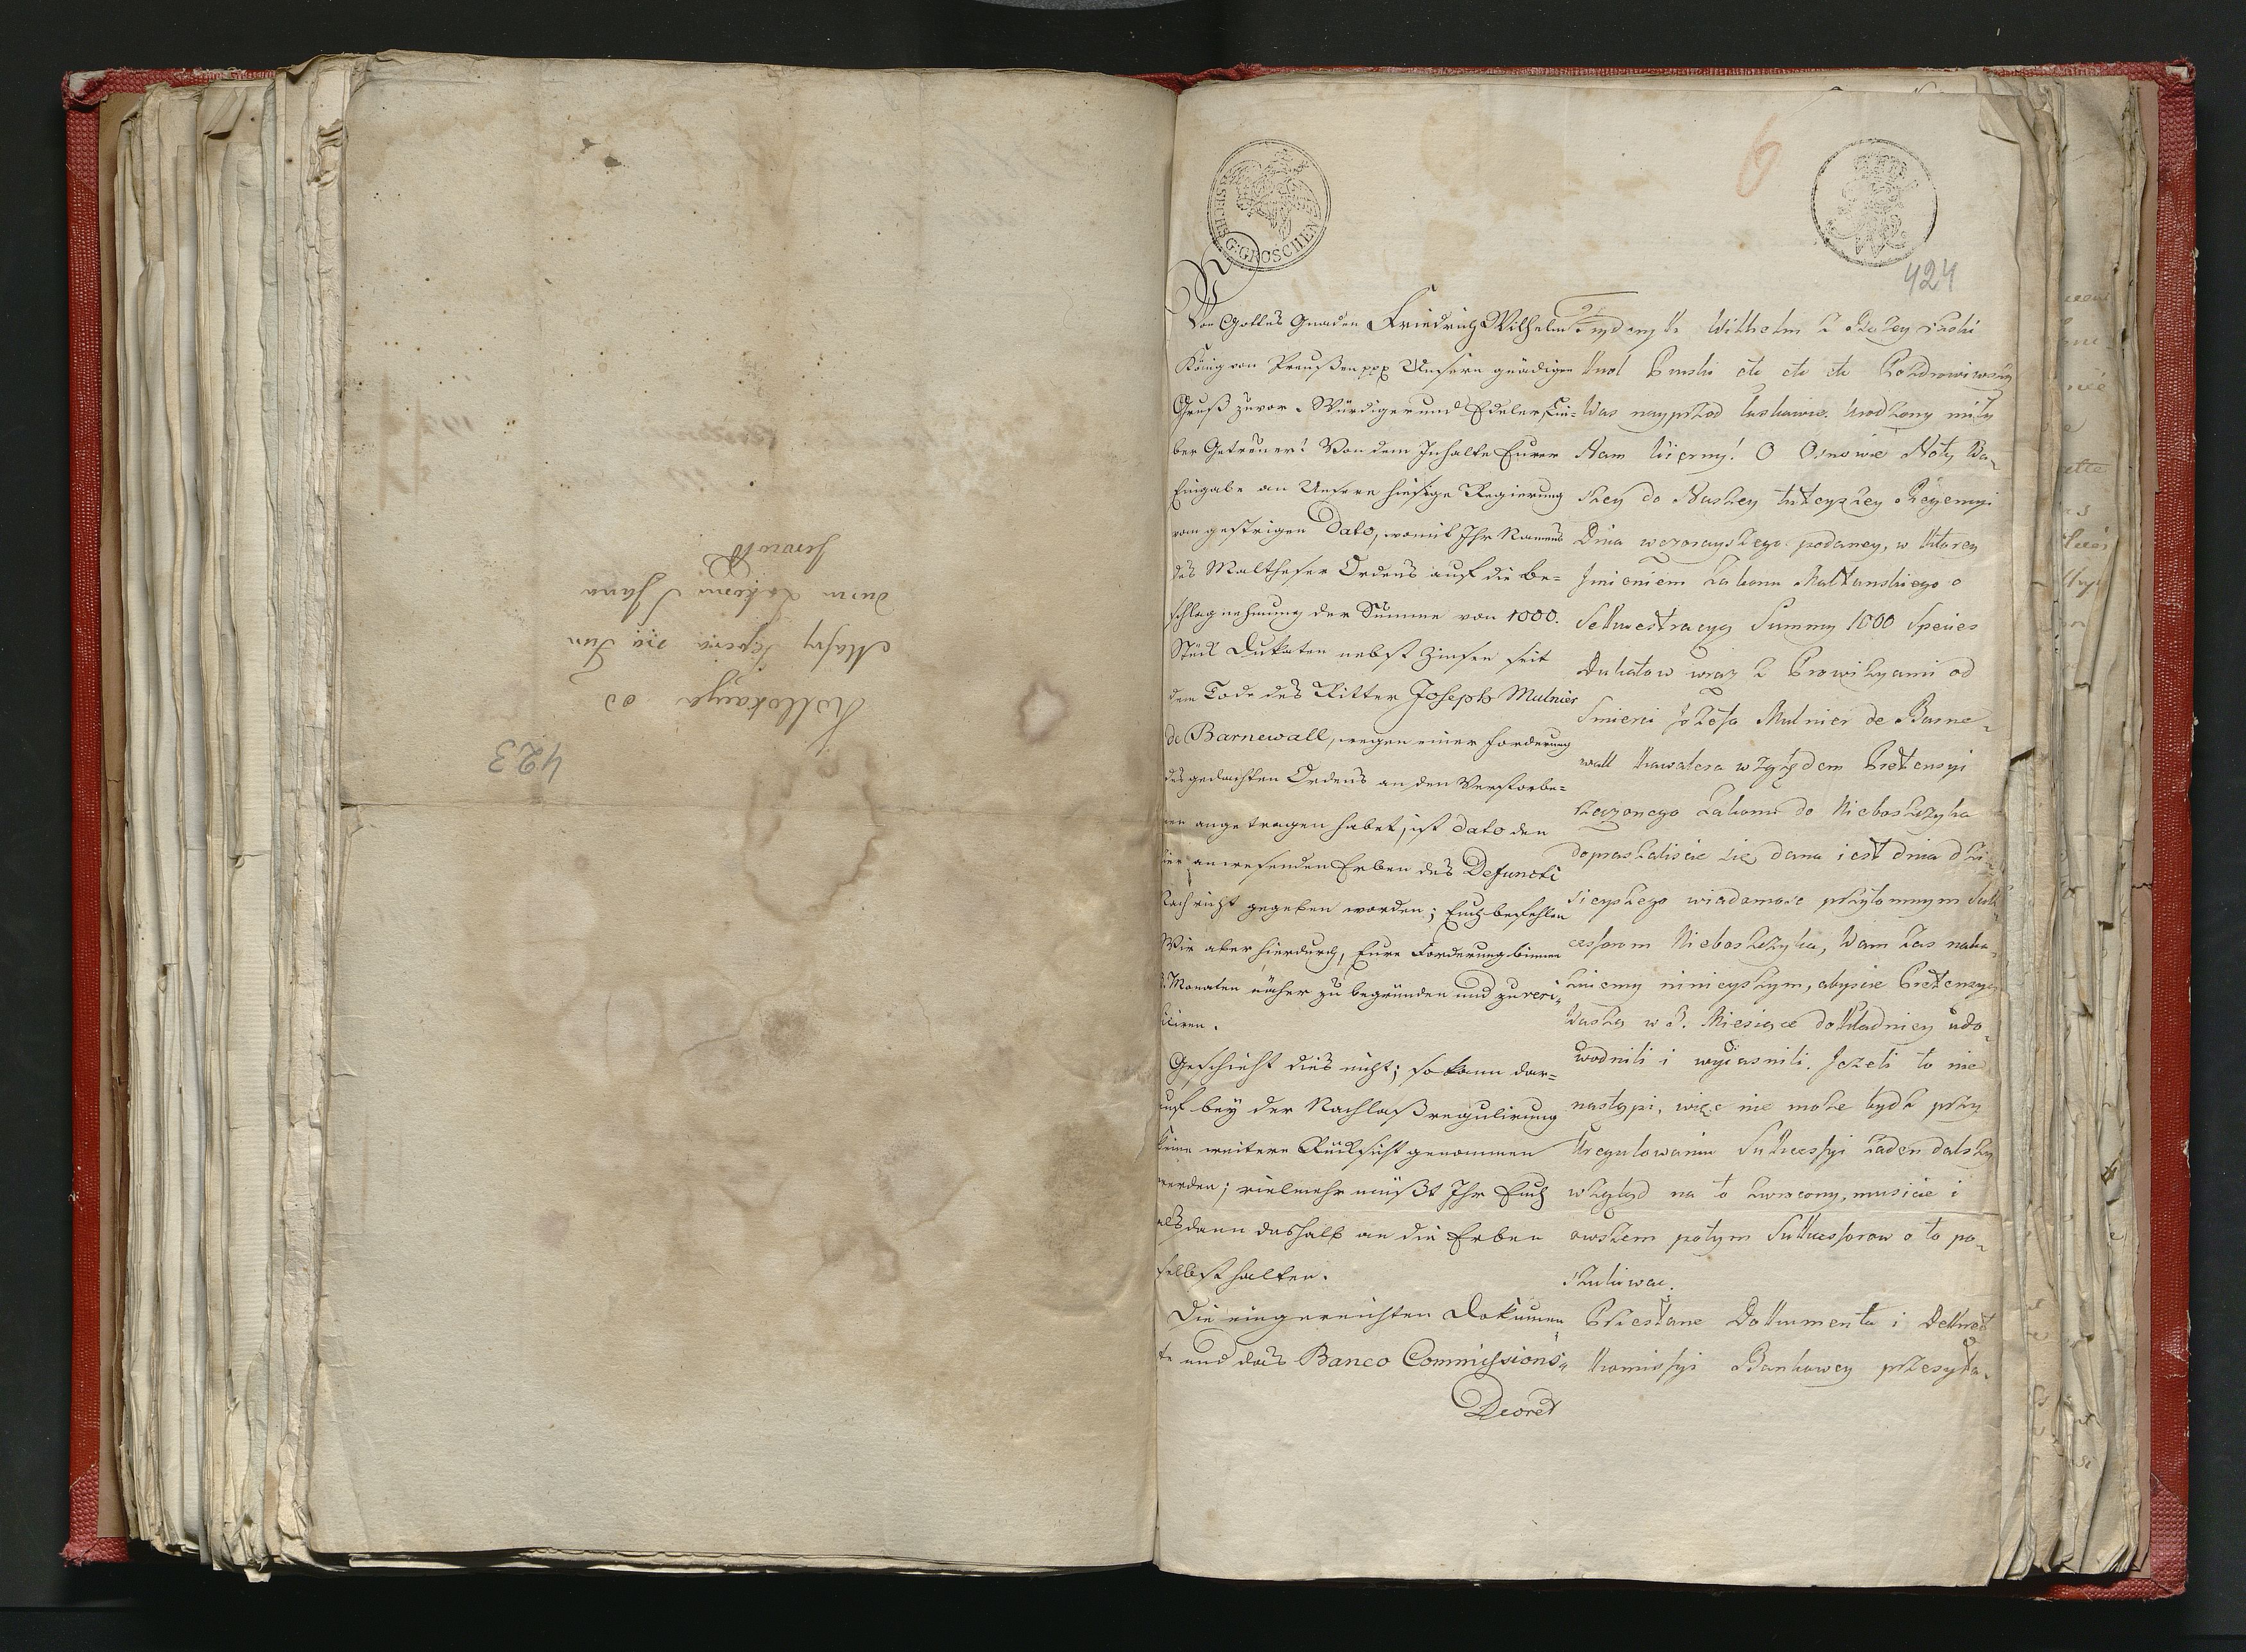 423
Kollokacya od
Massy
Zakonu S Jana
SECHS G:GROSCHEN
6
424
Von Gottes Gnaden Friedrich Wilhelm
König von Preußen ppp Unsern gnädigen
Gruß zuvor. Würdiger und Edeler, Lie=
ber Getreuer! Von dem Inhalte Eurer
Eingabe an Unsere hiesige Regierung
vom gestrigen Dato, womit Ihr Namens
des Maltheser Ordens auf die Be=
schlagnehmung der Summe von 1000.
Stück Dukaten nebst Zinsen seit
dem Tode des Ritter Joseph Mulnier
de Barnewall, wegen einer Forderung
des gedachten Ordens an den Verstorbe=
nen angetragen habet, ist dato den
hier anwesenden Erben des Defuncti
Nachricht gegeben worden; Euch befehlen
Wir aber hierdurch, Eure Forderung binnen
3. Monaten näher zu begründen und zu veri=
ficiren.
Geschieht dies nicht; so kann dar=
auf bey der Nachlaßregulirung
keine weitere Rücksicht genommen
werden; vielmehr müßt Ihr Euch
alsdann deshalb an die Erben
selbst halten.
Die eingereichten Dokumen=
te und das Banco Commissions=
Decret
Frydenyk Wilhelm z Bożey Łaski
Krol Pruski etc etc etc Pozdrowiwszy
Was nayprzod łaskawie. Urodzony miły
Nam Wierny! O Osnowie Noty Wa=
szey do Naszey tuteyszey Regencyi
Dnia wczorayszego podaney, w ktorey
Jmieniem Zakonu Maltanskiego o
Sekwestracyą Summy 1000 Species
Dukatow wraz z Prowizyami od
Smierci Jozefa Mulnier de Barne=
wall Kawalera względem Pretensyi
rzeczonego Zakonu do Nieboszczyka
dopraszaliscie się dana iest dnia dzi=
sieyszego wiadomosc przytomnym Suk=
cessorom Nieboszczyka, Wam zas naka=
zuiemy ninieyszym, abyscie Pretensyą
Waszą w 3. Miesiące dokładniey udo=
wodnili i wyiasnili. Jeżeli to nie
nastąpi, więc nie może bydz przy
Uregulowaniu Sukcessyi żaden dalszy
wzgląd na to zwrocony, musicie i
owszem potym Sukcessorow o to po=
szukiwac.
Przesłane Dokumenta i Dekret
Komissyi Bankowey przesyła=